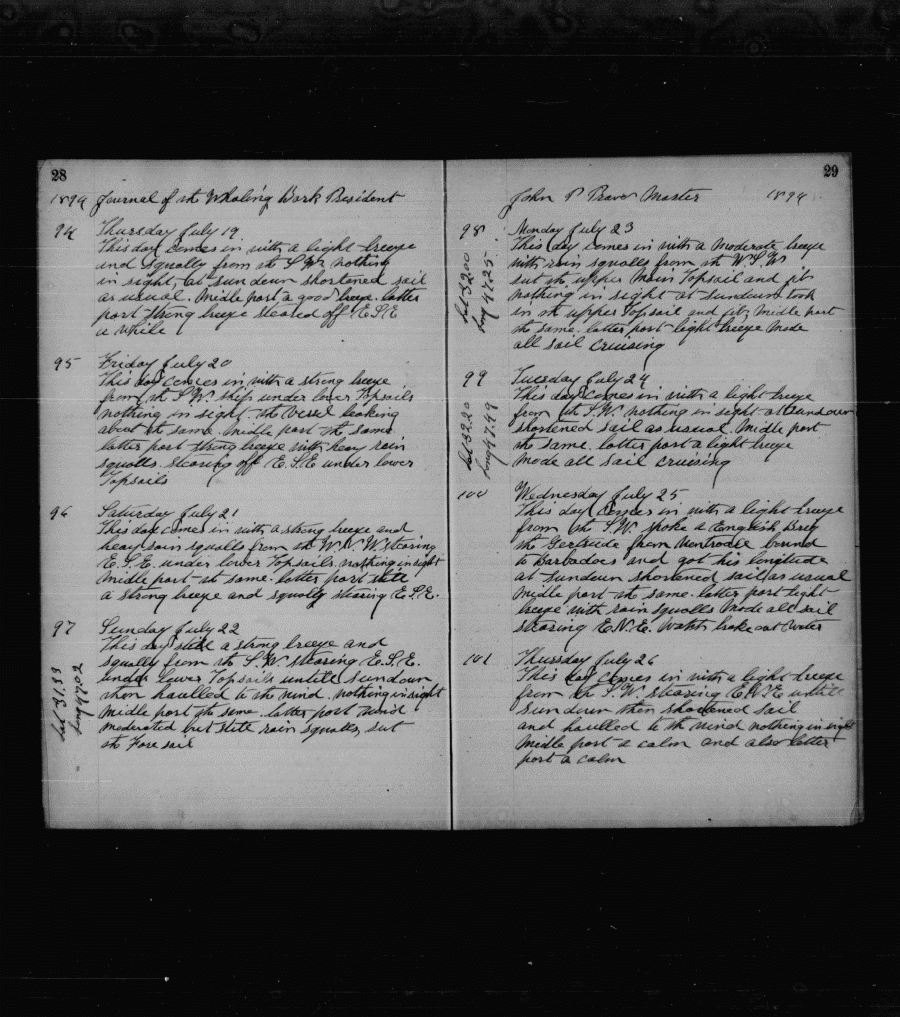 28
1894 Journal of the Whaling Bark President
94 Thursday July 19
This day comes in with a light breeze
and squally from the S.W. nothing
in sight, at sundown shortened sail
as usual. Middle part a good breeze. latter
part strong breeze steared off E.S.E
a while
95 Friday July 20
This day comes in with a strong breeze
from the S.W. ship under lower Topsails
nothing in sight. the vessel leaking
about the same. Middle part the same
latter part strong breeze with heay rain
squalls. stearing off E.S.E under lower
Topsails
96 Saturday July 21
This day comes in with a strong breeze and
heay rain squalls from the W.N.W. stearing
E.S.E. under lower Topsails. nothing in sight
Middle part the same. latter part still
a strong breeze and squally stearing E.S.E.
97 Sunday July 22
This day still a strong breeze and
squally from the S.W. stearing E.S.E.
under Lower Topsails untill sundown
then haulled to the wind. nothing in sight
Middle part the same. latter part wind
moderated but still rain squalls, sut
the Fore sail
Lat 31.33
Long 47.02
29
John P Master 1894
98 Monday July 23
This day comes in with a Moderate breeze
with rain squalls from the W.S.W
sut the upper Main Topsail and jib
nothing in sight at sundown took
in the upper Topsail and jib, Middle part
the same. latter part light breeze Made
all sail cruising
Lat 32.00
Long 47.25
99 Tuesday July 24
This day comes in with a light breeze
from the S.W. nothing in sight at sundown
shortened sail as usual. Middle part
the same. latter part a light breeze
Made all sail cruising
Lat 32.20
Long 47.49
100 Wednesday July 25
This day comes in with a light breeze
from the S.W. spoke a English Brig
the Gertrude from bound
to Barbadoes and got his longitude
at sundown shortened sail as usual
Middle part the same. latter part light
breeze with rain squalls Made all sail
stearing E.N.E. Watch broke out Water
101 Thursday July 26
This day comes in with a light breeze
from the S.W. stearing E.N.E untill
sundown then shortened sail
and haulled to the wind nothing in sight
Middle part a calm and also latter
part a calm